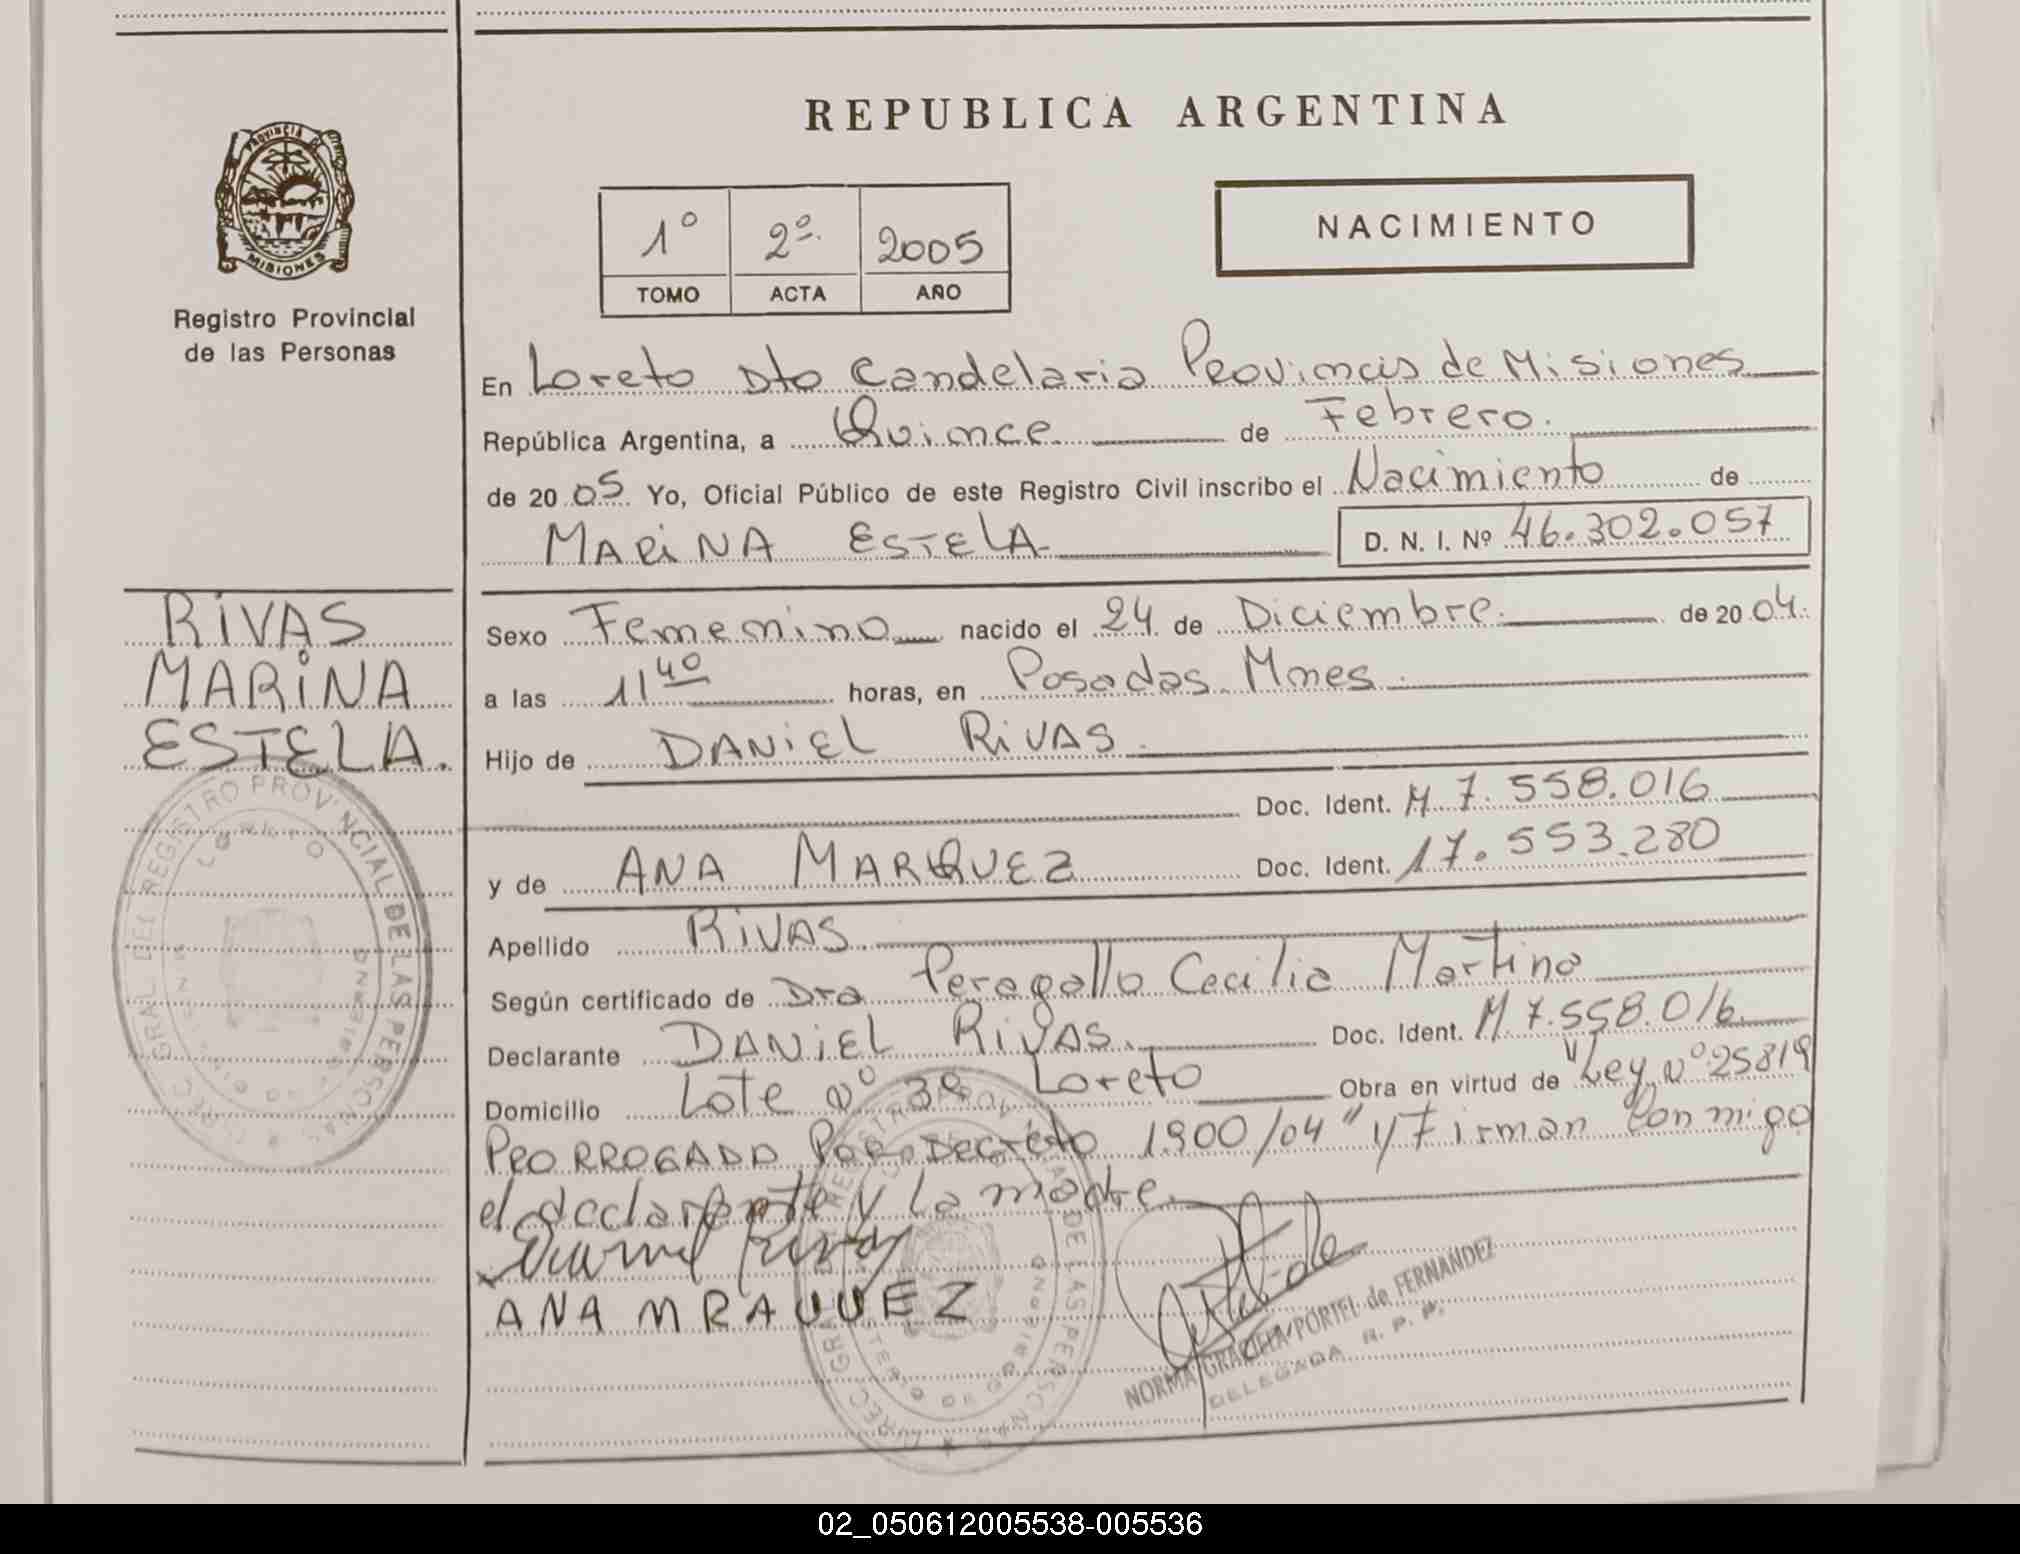 REPUBLICA ARGENTINA
PROVINCIA DE
MISIONES
Registro Provincial
de las Personas
1º 2º 2005
TOMO ACTA AÑO
NACIMIENTO
En Loreto Dto Candelaria Provincia de Misiones
República Argentina, a Quince de Febrero.
de 20 05 Yo, Oficial Público de este Registro Civil inscribo el Nacimiento de
MARiNA ESTELA D. N. I. Nº 46.302.057
RiVAS
MARiNA
ESTELA.
Sexo Femenino nacido el 24 de Diciembre de 20 04.
a las 11 40 horas, en Posadas Mnes.
Hijo de DANiEL RiVAS.
Doc. Ident. M 7.558.016
y de ANA MARQUEZ Doc. Ident. 17.553.280
Apellido RiVAS.
Según certificado de Dra Peragallo Cecilia Martina
Declarante DANiEL RiVAS. Doc. Ident. M 7.558.016.
Domicilio Lote Nº 38 Loreto Obra en virtud de "Ley Nº 25819
PRORROGADA POR Decreto 1.900/04" y Firman Conmigo
el declarante y la madre.
Daniel Rivas
ANA MRAUUEZ
NORMA GRACIELA PORTEL de FERNANDEZ
DELEGADA R. P. P.
DIREC GRAL DEL REGISTRO PROVINCIAL DE LAS PERSONAS
LORETO
DIREC GRAL DEL REGISTRO PROVINCIAL DE LAS PERSONAS
02_050612005538-005536